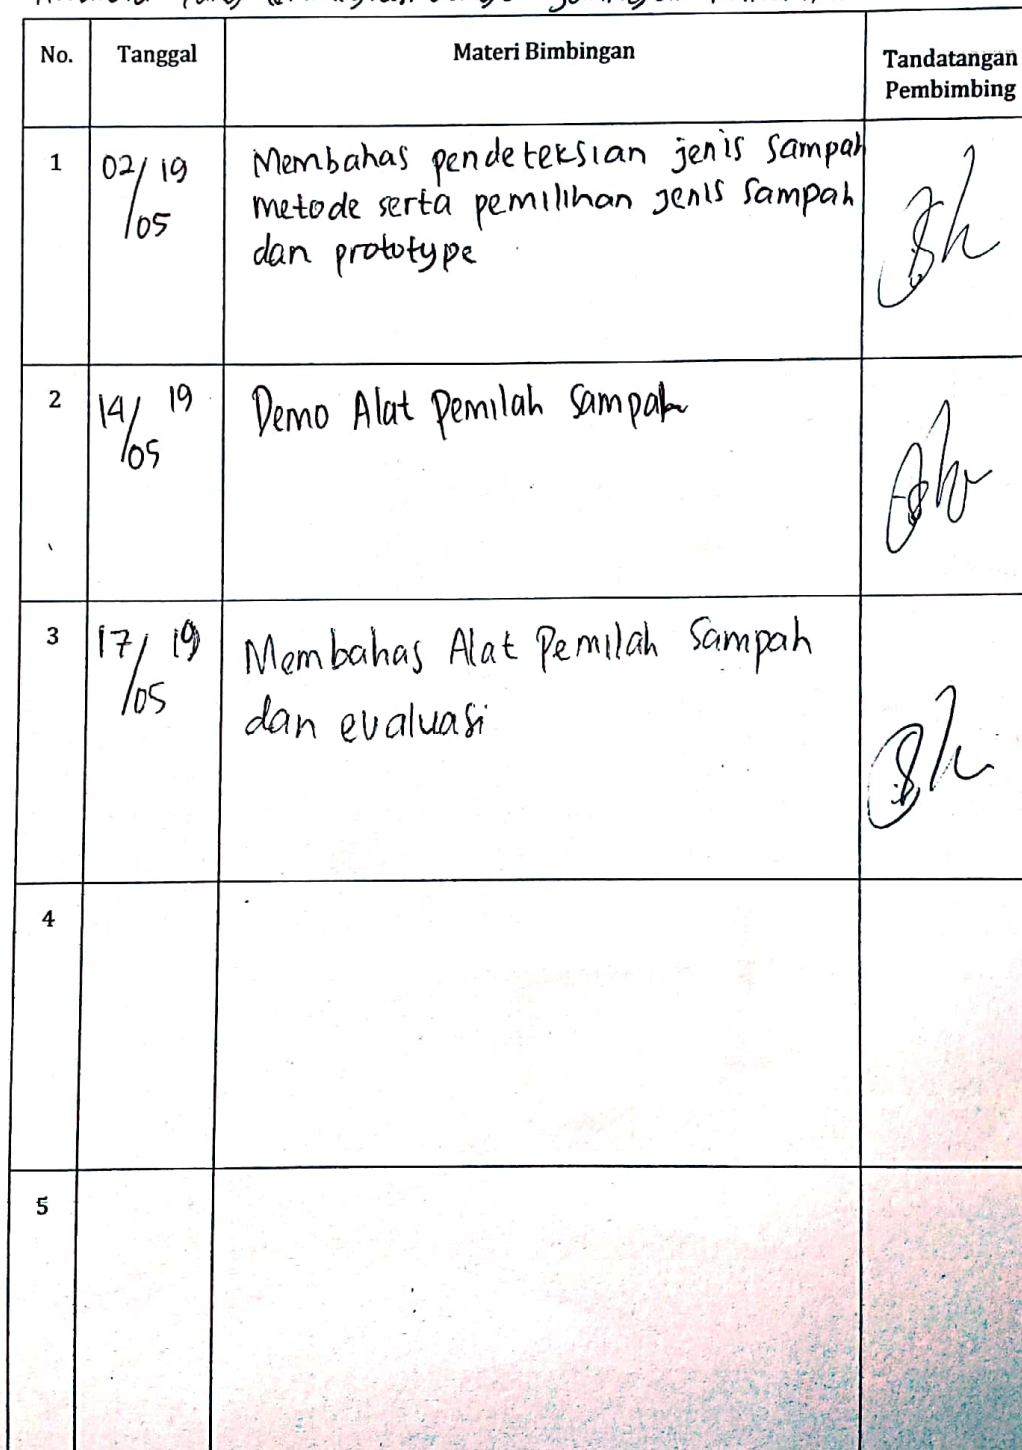 No. Tanggal Materi Bimbingan Tandatangan
Pembimbing
1 02/05 19 Membahas pendeteksian jenis sampah
metode serta pemilihan jenis sampah
dan prototype
2 14/05 19 Demo Alat Pemilah Sampah
3 17/05 19 Membahas Alat Pemilah Sampah
dan evaluasi
4
5